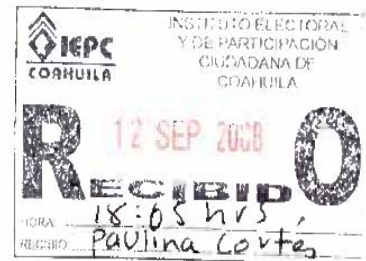 IEPC
COAHUILA
INSTITUTO ELECTORAL
Y DE PARTICIPACIÓN
CIUDADANA DE
COAHUILA
12 SEP 2008
RECIBIDO
HORA 18:05 hrs,
RECIBIO Paulina Cortes